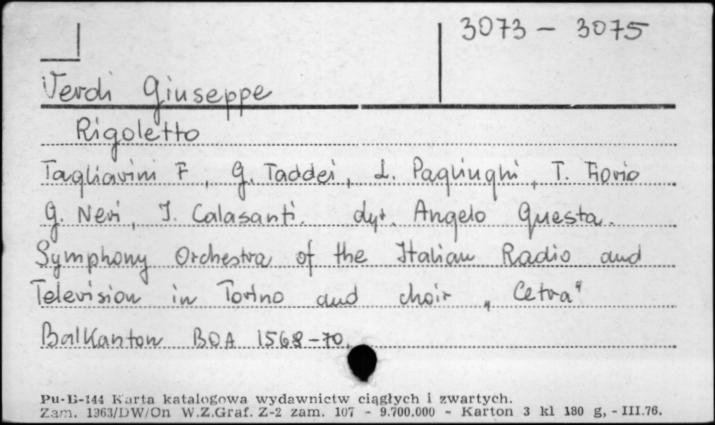 3073 - 3075
Verdi Giuseppe
Rigoletto
Tagliavini F, G. Taddei, L. Pagliughi, T. Fiorio
G. Neri, I. Calasanti. dyr. Angelo Questa.
Symphony Orchestra of the Italian Radio and
Television in Torino and choir „Cetra"
Balkanton BOA 1568-70.
Pu-B-144 Karta katalogowa wydawnictw ciągłych i zwartych.
Zam. 1363/DW/On W.Z.Graf. Z-2 zam. 107 - 9.700.000 - Karton 3 kl 180 g, - III.76.